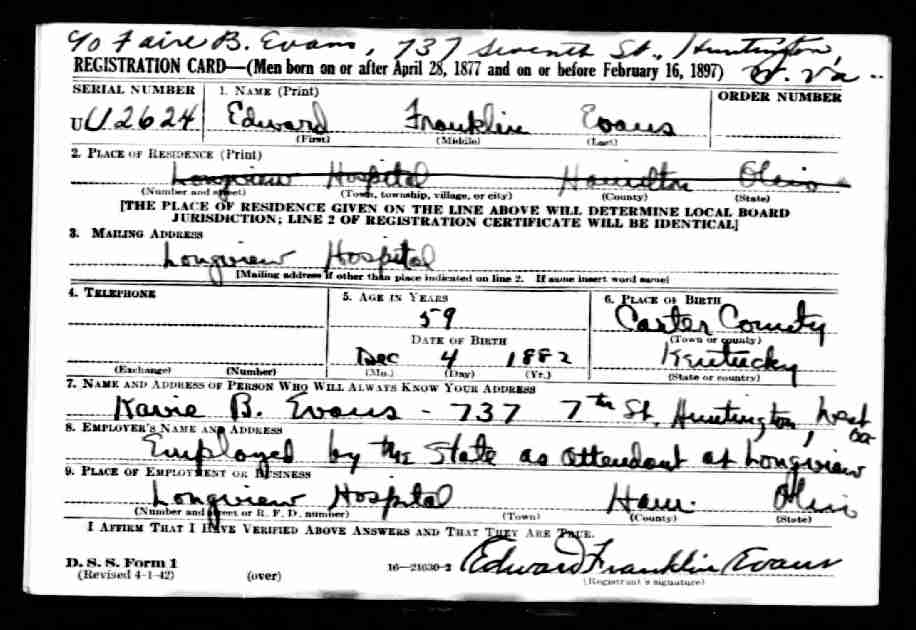 c/o Faire B. Evans, 737 Seventh St., Huntington,
W. Va.
REGISTRATION CARD—(Men born on or after April 28, 1877 and on or before February 16, 1897)
SERIAL NUMBER 1. NAME (Print) ORDER NUMBER
U U2624 Edward Franklin Evans
(First) (Middle) (Last)
2. PLACE OF RESIDENCE (Print)
Longview Hospital Hamilton Ohio
(Number and street) (Town, township, village, or city) (County) (State)
[THE PLACE OF RESIDENCE GIVEN ON THE LINE ABOVE WILL DETERMINE LOCAL BOARD
JURISDICTION; LINE 2 OF REGISTRATION CERTIFICATE WILL BE IDENTICAL]
3. MAILING ADDRESS
Longview Hospital
[Mailing address if other than place indicated on line 2. If same insert word same]
4. TELEPHONE 5. AGE IN YEARS 6. PLACE OF BIRTH
59 Carter County
DATE OF BIRTH (Town or county)
Dec 4 1882 Kentucky
(Exchange) (Number) (Mo.) (Day) (Yr.) (State or country)
7. NAME AND ADDRESS OF PERSON WHO WILL ALWAYS KNOW YOUR ADDRESS
B. Evans - 737 7th St. Huntington, West
va
8. EMPLOYER'S NAME AND ADDRESS
Employed by the State as attendant at Longview
9. PLACE OF EMPLOYMENT OR BUSINESS
Longview Hospital Ham. Ohio
(Number and street or R. F. D. number) (Town) (County) (State)
I AFFIRM THAT I HAVE VERIFIED ABOVE ANSWERS AND THAT THEY ARE TRUE.
D. S. S. Form 1
(Revised 4-1-42) (over) 16—21630-2 Edward Franklin Evans
(Registrant's signature)